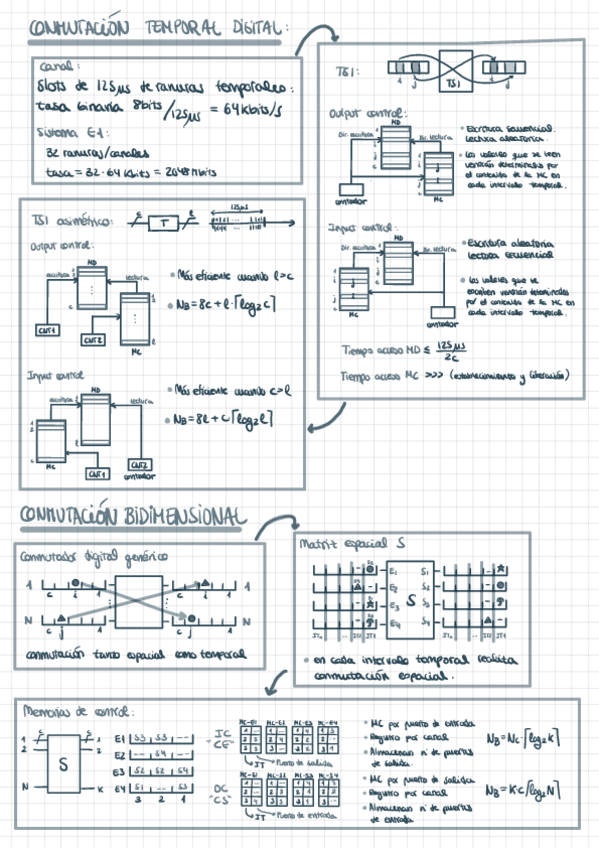 CONMUTACIÓN TEMPORAL DIGITAL:
Canal:
Slots de 125μs de ranuras temporales:
tasa binaria 8bits/125μs = 64Kbits/s
Sistema E1:
32 ranuras/canales
tasa = 32·64 Kbits = 2048 Mbits
TSI:
i j
i j
TSI
Output control:
MD
Dir. escritura
Dir. lectura
contador
MC
• Escritura secuencial.
Lectura aleatoria.
• Los valores que se leen
vendrán determinados por
el contenido de la MC en
cada intervalo temporal.
Input control:
MD
Dir. escritura
Dir. lectura
MC
contador
• Escritura aleatoria
Lectura secuencial
• Los valores que se
escriben vendrán determinados
por el contenido de la MC en
cada intervalo temporal.
Tiempo acceso MD ≤ 125μs/2c
Tiempo acceso MC >>> (establecimiento y liberación)
TSI asimétrico:
c T l
125μs
Output control:
MD
escritura
lectura
c
CNT1
CNT2
MC
l
• Más eficiente cuando l>c
• NB = 8c + l·⌈log2c⌉
Input control
MD
escritura
lectura
l
c
MC
CNT1
CNT2
contador
• Más eficiente cuando c>l
• NB = 8l + c⌈log2l⌉
CONMUTACIÓN BIDIMENSIONAL
Conmutador digital genérico
1 c i 1 c i 1 1
N c j 1 c j 1 N
conmutación tanto espacial como temporal
Matriz espacial S
E1 S1
E2 S2
E3 S3
E4 S4
S
• en cada intervalo temporal realiza
conmutación espacial.
Memorias de control:
1 c c 1
2 2
S
N K
E1 S3 S3 --
E2 -- S4
E3 S2 S2 S4
E4 S1 -- S3
3 2 1
IC
"CE"
MC-E1 MC-E2 MC-E3 MC-E4
IT Puerto de salida
OC
"CS"
MC-S1 MC-S2 MC-S3 MC-S4
IT Puerto de entrada
• MC por puerto de entrada
• Registro por canal
• Almacenan nº de puertos
de salida.
NB = N·c·⌈log2K⌉
• MC por puerto de salida
• Registro por canal
• Almacenan nº de puertos
de entrada
NB = K·c⌈log2N⌉